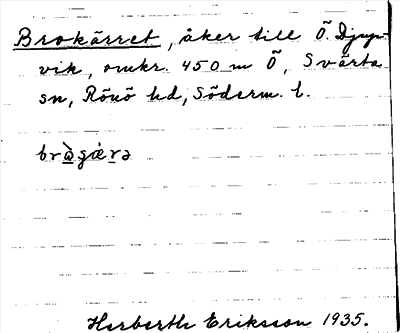 Brokärret, åker till Ö. Djup-
vik, omkr. 450 m Ö, Svärta
sn, Rönö hd, Söderm. l.
brògæ̀rə
Herberth Eriksson 1935.